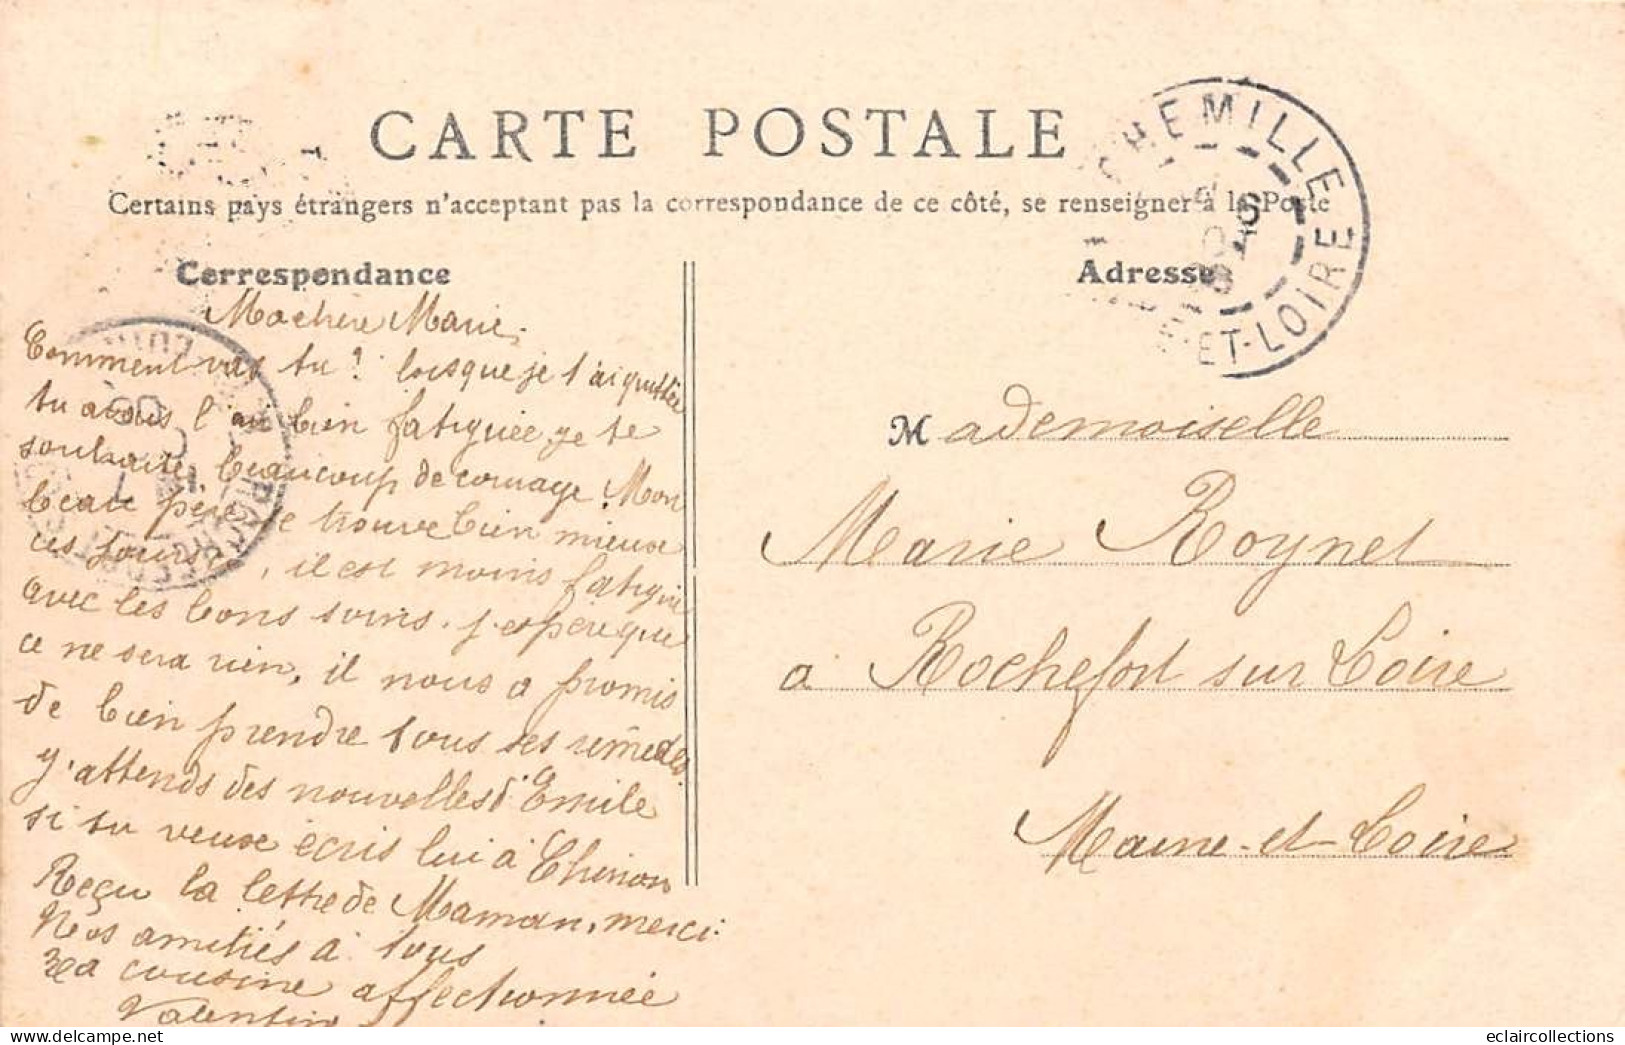 CARTE POSTALE
Certains pays étrangers n'acceptant pas la correspondance de ce côté, se renseigner à la Poste
Correspondance
Adresse
CHEMILLE
ET-LOIRE
Ma chère Marie.
Comment vas tu ? lorsque je t'ai quittée
tu avais l'air bien fatiguée, je te
souhaite beaucoup de courage. Mon
beau père se trouve bien mieux
ces jours ci, il est moins fatigué
avec les bons soins. j'espère que
ce ne sera rien, il nous a promis
de bien prendre tous ses remèdes
J'attends des nouvelles d'Emile
si tu veux écris lui à Chinon
Reçu la lettre de Maman, merci
Nos amitiés à tous
Ta cousine affectionnée
Valentin
Mademoiselle
Marie Roynet
à Rochefort sur Loire
Maine-et-Loire
eclaircollections